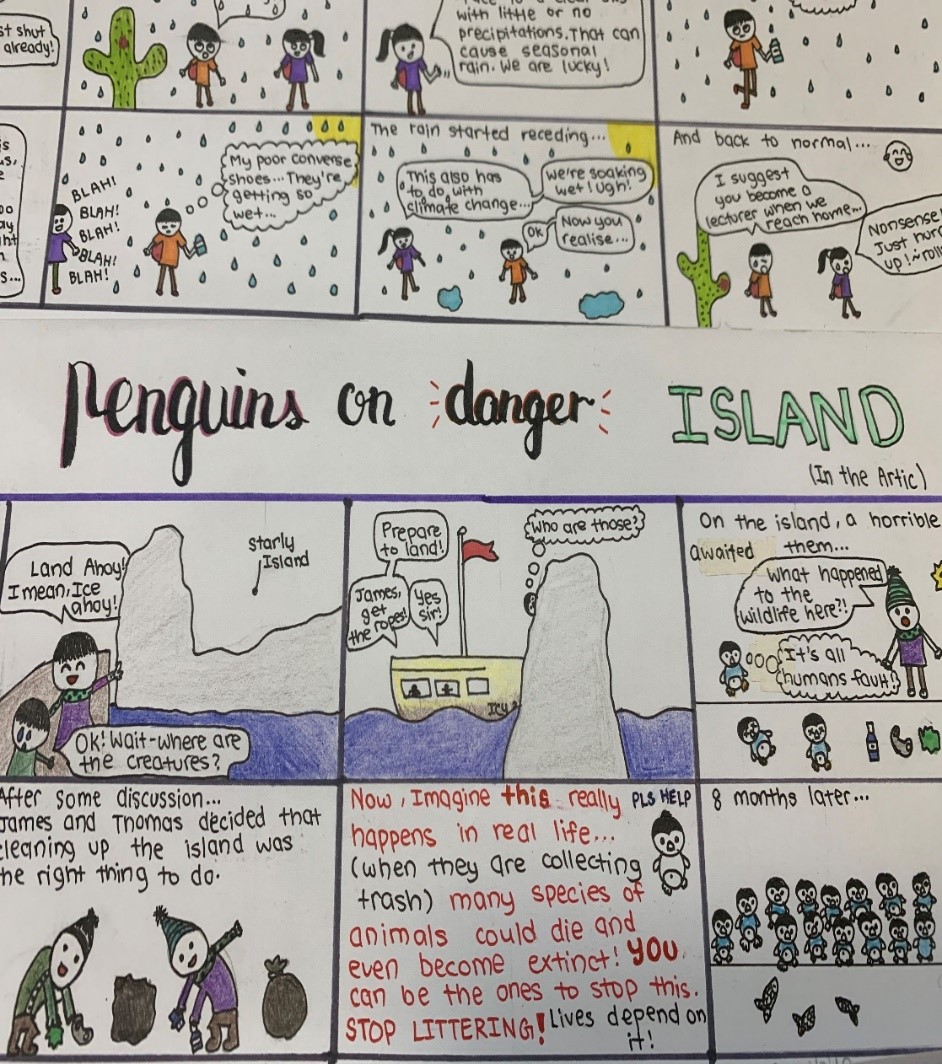 st shut
already!
with little or no
precipitations. That can
cause seasonal
rain. We are lucky!
BLAH!
BLAH!
BLAH!
BLAH!
BLAH!
My poor converse
shoes... They're
getting so
wet...
The rain started receding...
This also has
to do with
climate change...
we're soaking
wet! Ugh!
OK
Now you
realise...
And back to normal...
I suggest
you become a
lecturer when we
reach home...
Nonsense!
Just
up!
Penguins on danger ISLAND
(In the Artic)
Land Ahoy!
I mean, Ice
ahoy!
Starly
Island
OK! Wait-where are
the creatures?
Prepare
to land!
James,
get
the ropes!
Yes
sir!
Who are those?
On the island, a horrible
awaited them...
What happened
to the
wildlife here?!
It's all
humans fault!
After some discussion...
James and Thomas decided that
cleaning up the island was
the right thing to do.
Now, Imagine this really
happens in real life...
(when they are collecting
trash) many species of
animals could die and
even become extinct! YOU
can be the ones to stop this.
STOP LITTERING! Lives depend on
it!
PLS HELP
8 months later...